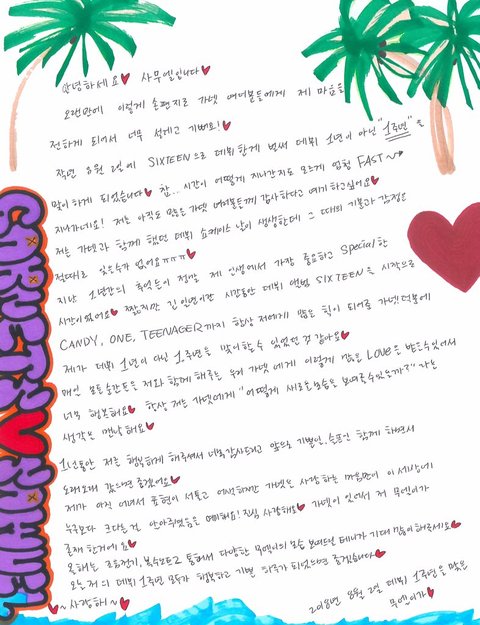 안녕하세요♥ 사무엘입니다♥
오랜만에 이렇게 손편지로 가넷 여러분들에게 제 마음을
전하게 되어서 너무 설레고 기뻐요!♥
작년 8월 2일에 SIXTEEN으로 데뷔한게 벌써 데뷔 1년이 아닌 "1주년"을
맞이하게 되었습니다♥ 참.. 시간이 어떻게 지나간지도 모르게 엄청 FAST~
지나가네요! 저는 아직도 많은 가넷 여러분들께 감사하다고 얘기하고싶어요♥
저는 가넷과 함께 했던 데뷔 쇼케이스 날이 생생한데 그 때의 기분과 감정은
절대로 잊을수가 없어요ㅠㅠㅠ♥
지난 1년간의 추억들이 정말 제 인생에서 가장 중요하고 Special한
시간이었어요♥ 짧지만 긴 1년이란 시간동안 데뷔 앨범 SIXTEEN을 시작으로
CANDY, ONE, TEENAGER까지 항상 저에게 많은 힘이 되어준 가넷덕분에
제가 데뷔 1년이 아닌 1주년을 맞이할수 있었던 것 같아요♥
매번 모든순간들을 저와 함께 해주는 우리 가넷에게 이렇게 많은 LOVE를 받을수있어서
너무 행복해요♥ 항상 저는 가넷에게 "어떻게 새로운모습을 보여줄수있을까?" 라는
생각을 맨날해요♥
1년동안 저를 행복하게 해주셔서 너무감사드리고 앞으로 기쁠일, 슬픈일 함께 하면서
오래오래 갔으면 좋겠어요♥
제가 아직 어려서 표현이 서툴고 어색하지만 가넷을 사랑하는 마음만은 이 세상에
누구보다 크다는걸 알아주셨음은 해요! 진심 사랑해요♥ 가넷이 있어서 저 무엘이가
존재한거에요♥
올해는 조음전기, 복수노트2 통해서 다양한 무엘이의 모습 보여드릴 테니까 기대 많이해주세요♥
오늘 저의 데뷔 1주년 모두가 행복하고 기쁜 하루가 되었으면 좋겠습니다♥
♥~사랑해~♥
2018년 8월 2일 데뷔 1주년을 맞은
무엘이가♥
GARNET♥SAMUEL